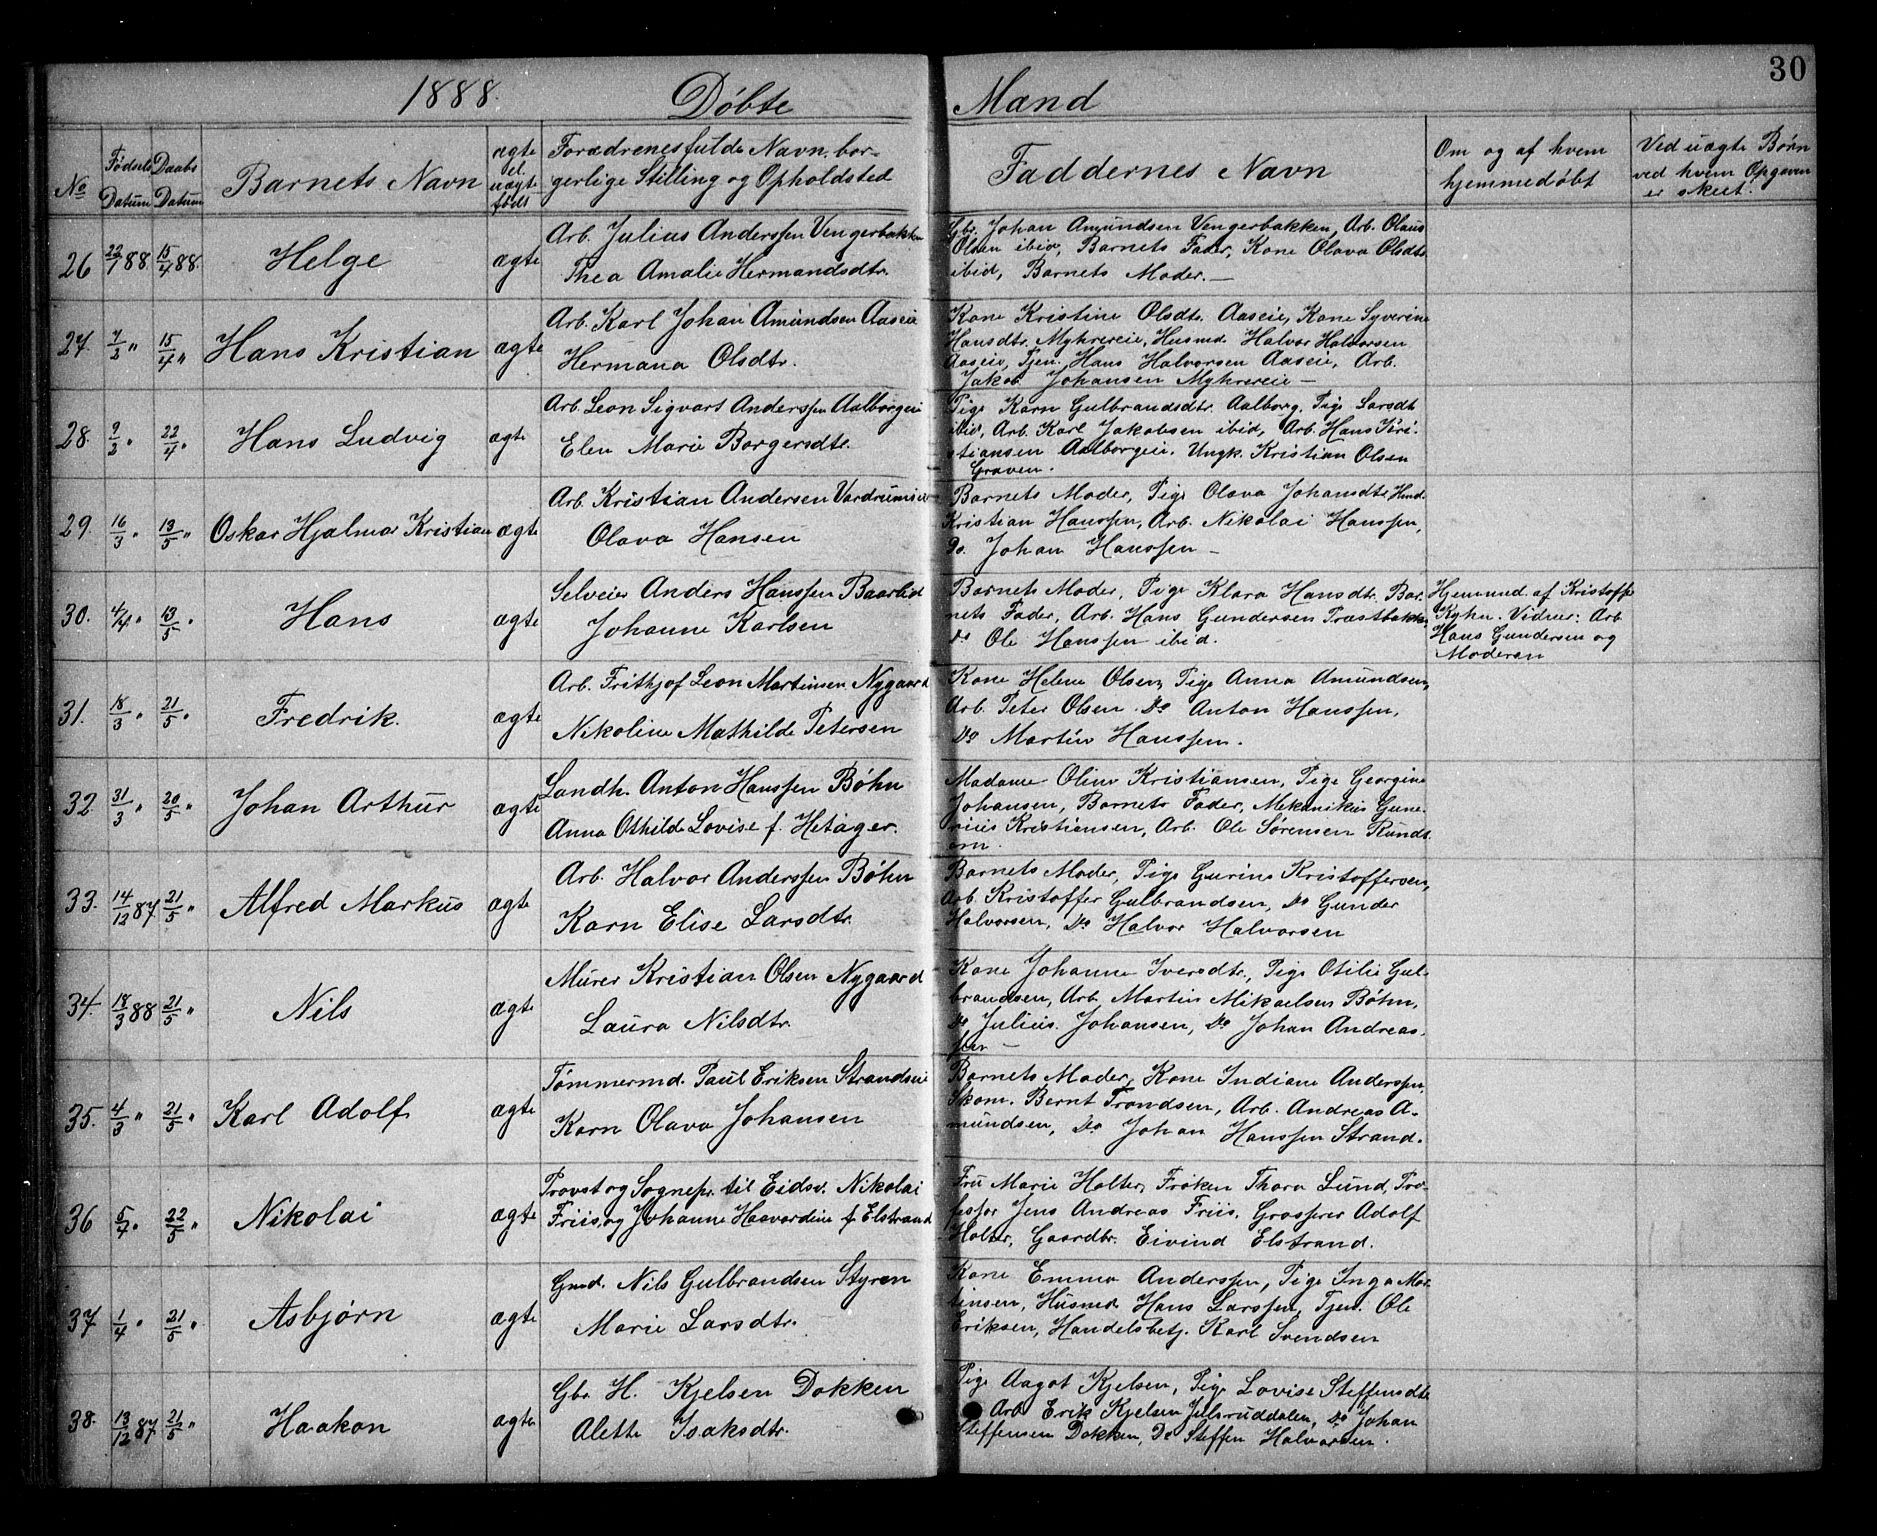 30
1888. Døbte Mænd
No
Fødsels Datum
Daabs Datum
Barnets Navn
ægte el. uægte føds
Forædrenes fulde Navn, bor-
gerlige Stilling og Opholdsted
Faddernes Navn
Om og af hvem
hjemmedøbt
Ved uægte Børn
ved hvem Opgaven
er skeet.
26 22/1 88. 15/4 88. Helge ægte
Arb. Julius Anderssen Vengerbakken
Thea Amalie Hermandsdtr.
Gbr. Johan Amundsen Vengerbakken, Arb. Olaus
Olsen ibid, Barnets Fader, Kone Olava Olsdtr.
ibid, Barnets Moder. —
27. 7/2 " 15/4 " Hans Kristian ægte
Arb. Karl Johan Amundsen Aaseie
Hermana Olsdtr.
Kone Kristine Olsdtr. Aaseie, Kone Syverine
Hansdtr. Myhrereie, Husmd. Halvor Halvorsen
Aaseie, Tjen. Hans Halvorsen Aaseie, Arb.
Jakob Johansen Myhrereie —
28. 9/2 " 22/4 " Hans Ludvig ægte
Arb. Leon Sigvart Anderssen Aalborgeie
Elen Marie Borgersdtr.
Pige Karn Gulbrandsdtr. Aalborg, Pige Larsdt
ibid, Arb. Karl Jakobsen ibid, Arb. Hans Kri-
stiansen Aalborgeie, Ungk. Kristian Olsen
Graven.
29. 16/3 " 13/5 " Oskar Hjalmar Kristian ægte
Arb. Kristian Andersen Vardrumseie
Olava Hansen
Barnets Moder, Pige Olava Johansdtr.
Kristian Hanssen, Arb. Nikolai Hanssen,
Do. Johan Hanssen —
30. 4/4 " 13/5 " Hans ægte
Selveier Anders Hanssen Baarlid
Johanne Karlsen
Barnets Moder, Pige Klara Hansdtr. Bar-
nets Fader, Arb. Hans Gundersen Præstbakke,
do Ole Hanssen ibid.
Hjemmed. af Kristoffe
Kyhn. Vidner: Arb
Hans Gundersen og
Moderen
31. 18/3 " 21/5 " Fredrik. ægte
Arb. Frithjof Leon Martinsen Nygaard
Nikoline Mathilde Petersen
Kone Helene Olsen, Pige Anna Amundsen,
Arb. Peter Olsen. Do Anton Hanssen,
Do Martin Hanssen.
32. 31/3 " 20/5 " Johan Arthur ægte
Landh. Anton Hanssen Bøhn
Anna Othilde Lovise f. Hetager.
Madame Oline Kristiansen, Pige Georgine
Johansen, Barnets Fader, Mekanikus Gune-
rius Kristiansen, Arb. Ole Sørensen Rundt
om.
33. 14/12 87 21/5 " Alfred Markus ægte
Arb. Halvor Anderssen Bøhn
Karn Elise Larsdtr.
Barnets Moder, Pige Gurine Kristoffersen,
Arb. Kristoffer Gulbrandsen, Do Gunder
Halvorsen, Do Halvor Halvorsen
34. 18/3 88 21/5 " Nils ægte
Murer Kristian Olsen Nygaard
Laura Nilsdtr.
Kone Johanne Iversdtr., Pige Otilie Gul-
brandsen, Arb. Martin Mikaelsen Bøhn,
Do Julius Johansen, Do Johan Andreas-
sen —
35. 4/3 " 21/5 " Karl Adolf ægte
Tømmermd. Paul Eriksen Strandseie
Karn Olava Johansen
Barnets Moder, Kone Indiane Anderssen,
Skom. Bernt Trondsen, Arb. Andreas A-
mundsen, Do Johan Hanssen Strand.
36 5/7 " 22/5 " Nikolai ægte
Provst og Sognepr. til Eidsv. Nikolai
Friis, og Johanne Haavardine f. Elstrand
Fru Marie Holter, Frøken Thora Lund, Pro-
fessor Jens Andreas Friis, Grosserer Adolf
Holter, Gaardbr. Eivind Elstrand.
37 1/4 " 21/5 " Asbjørn ægte
Gmd. Nils Gulbrandsen Styren
Marie Larsdtr.
Kone Emma Anderssen, Pige Inga Mar-
tinsen, Husmd. Hans Larssen, Tjen. Ole
Eriksen, Handelsbetj. Karl Svendsen
38. 13/12 87 21/5 " Haakon ægte
Gbr H. Kjelsen Dokken
Alette Isaksdtr.
Pige Aagot Kjelsen, Pige Lovise Steffensdtr
Arb. Erik Kjelsen Julsruddalen, Do Johan
Steffensen Dokken, Do Steffen Halvorsen.